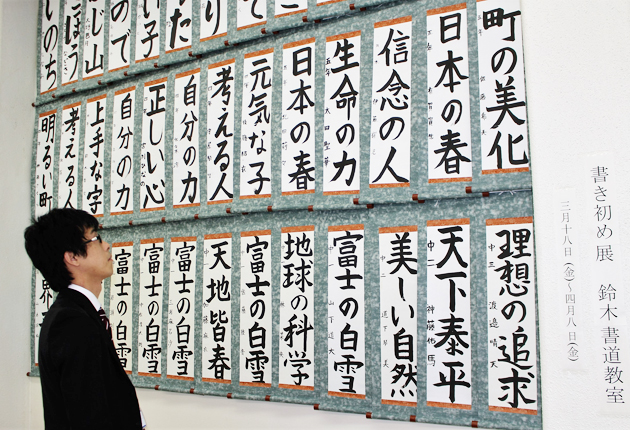 書き初め展　鈴木書道教室
三月十八日（金）～四月八日（金）
い子
ので
じ山
町の美化
日本の春
信念の人
生命の力
五年
日本の春
元気な子
考える人
自分の力
正しい心
自分の力
上手な字
考える人
明るい町
理想の追求
中三 渡邉晴天
天下泰平
中二
美しい自然
中二
富士の白雪
中一
地球の科学
富士の白雪
天地皆春
富士の白雪
富士の白雪
富士の白雪
界